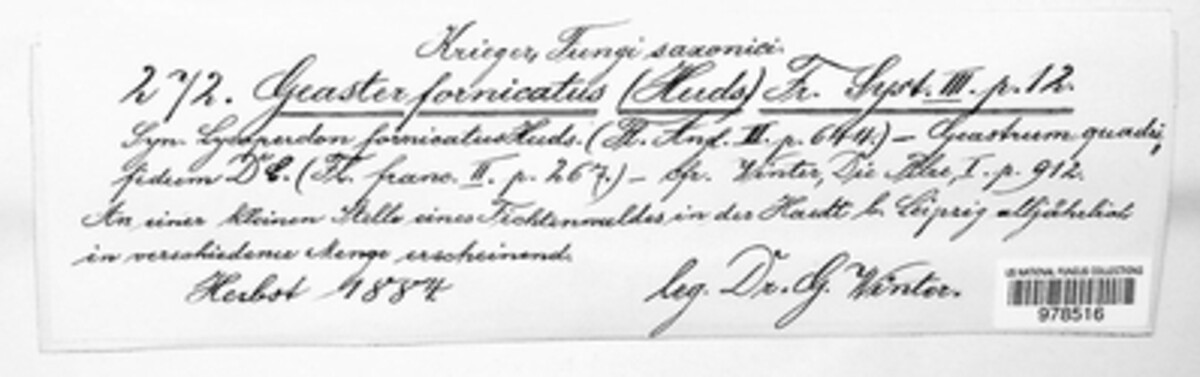 Krieger, Fungi saxonici.
272. Geaster fornicatus (Huds) Fr. Syst. III. p. 12.
Syn. Lycoperdon fornicatus Huds. (Fl. And. II. p. 644.) – Geastrum quadri,
fidum DC. (Fl. franc. II. p. 267.) – cfr. Winter, Die Pilze, I. p. 912.
An einer kleinen Stelle eines Fichtenwaldes in der Hardt b. Leipzig alljährlich
in verschiedener Menge erscheinend.
Herbst 1884
leg. Dr. G. Winter.
US NATIONAL FUNGUS COLLECTIONS
978516